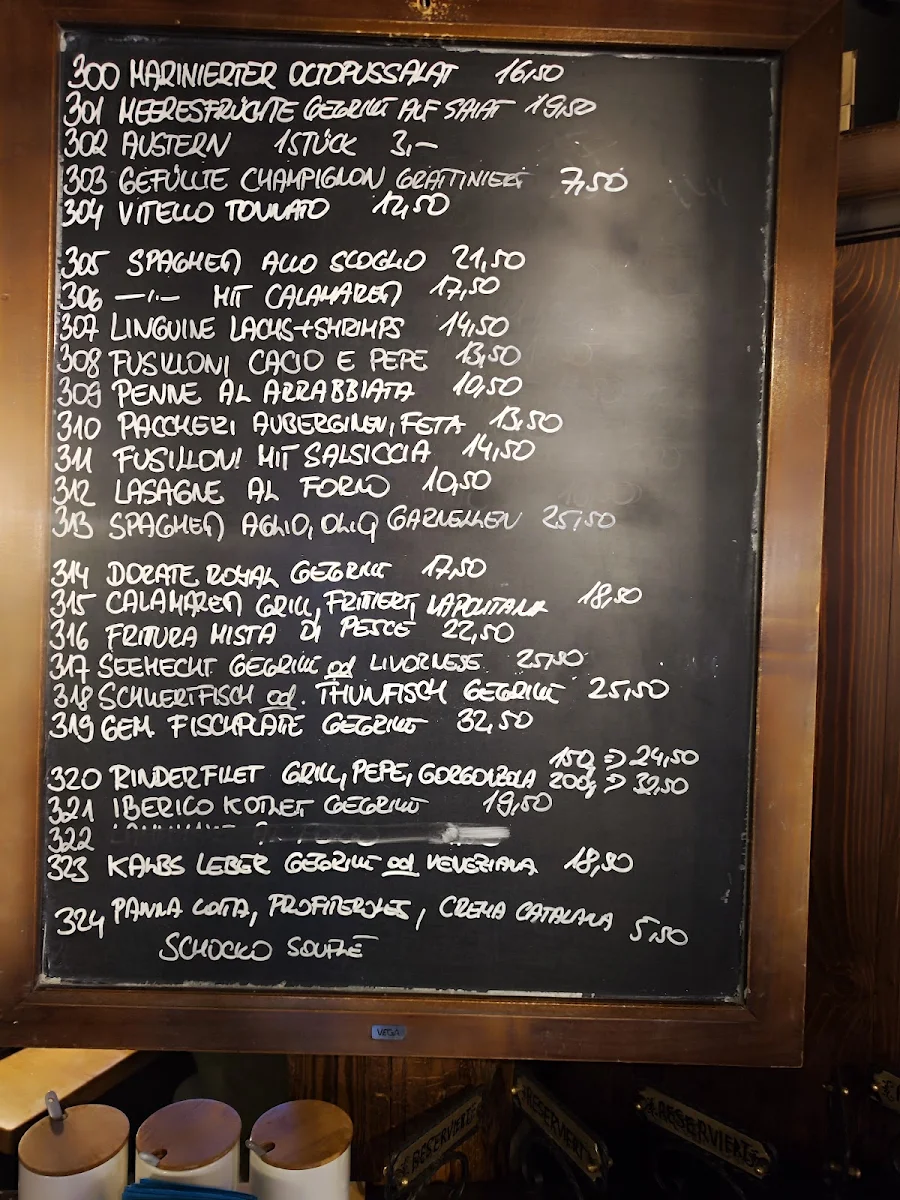 300 MARINIERTER OCTOPUSSALAT 16,50
301 MEERESFRÜCHTE GEGRILLT AUF SALAT 19,50
302 AUSTERN 1STÜCK 3,-
303 GEFÜLLTE CHAMPIGNON GRATTINIERT 7,50
304 VITELLO TONNATO 12,50
305 SPAGHETTI ALLO SCOGLIO 21,50
306 —"— MIT CALAMARETTI 17,50
307 LINGUINE LACHS+SHRIMPS 14,50
308 FUSILLONI CACIO E PEPE 13,50
309 PENNE AL ARRABBIATA 10,50
310 PACCHERI AUBERGINEN, FETA 13,50
311 FUSILLONI MIT SALSICCIA 14,50
312 LASAGNE AL FORNO 10,50
313 SPAGHETTI AGLIO, OLIO, GARNELLEN 25,50
314 DORATE ROYAL GEGRILLT 17,50
315 CALAMARETTI GRILL, FRITIERT, NAPOLITANA 18,50
316 FRITTURA MISTA DI PESCE 22,50
317 SEEHECHT GEGRILLT od LIVORNESE 25,50
318 SCHWERTFISCH od. THUNFISCH GEGRILLT 25,50
319 GEM. FISCHPLATE GEGRILLT 32,50
320 RINDERFILET GRILL, PEPE, GORGONZOLA 150g => 24,50
200g => 32,50
321 IBERICO KOTLET GEGRILLT 19,50
322
323 KALBS LEBER GEGRILLT od VENEZIANA 18,50
324 PANNA COTTA, PROFITEROLES, CREMA CATALANA 5,50
SCHOCKO SOUFLÉ
VEGA
RESERVIERT
RESERVIERT
RESERVIERT